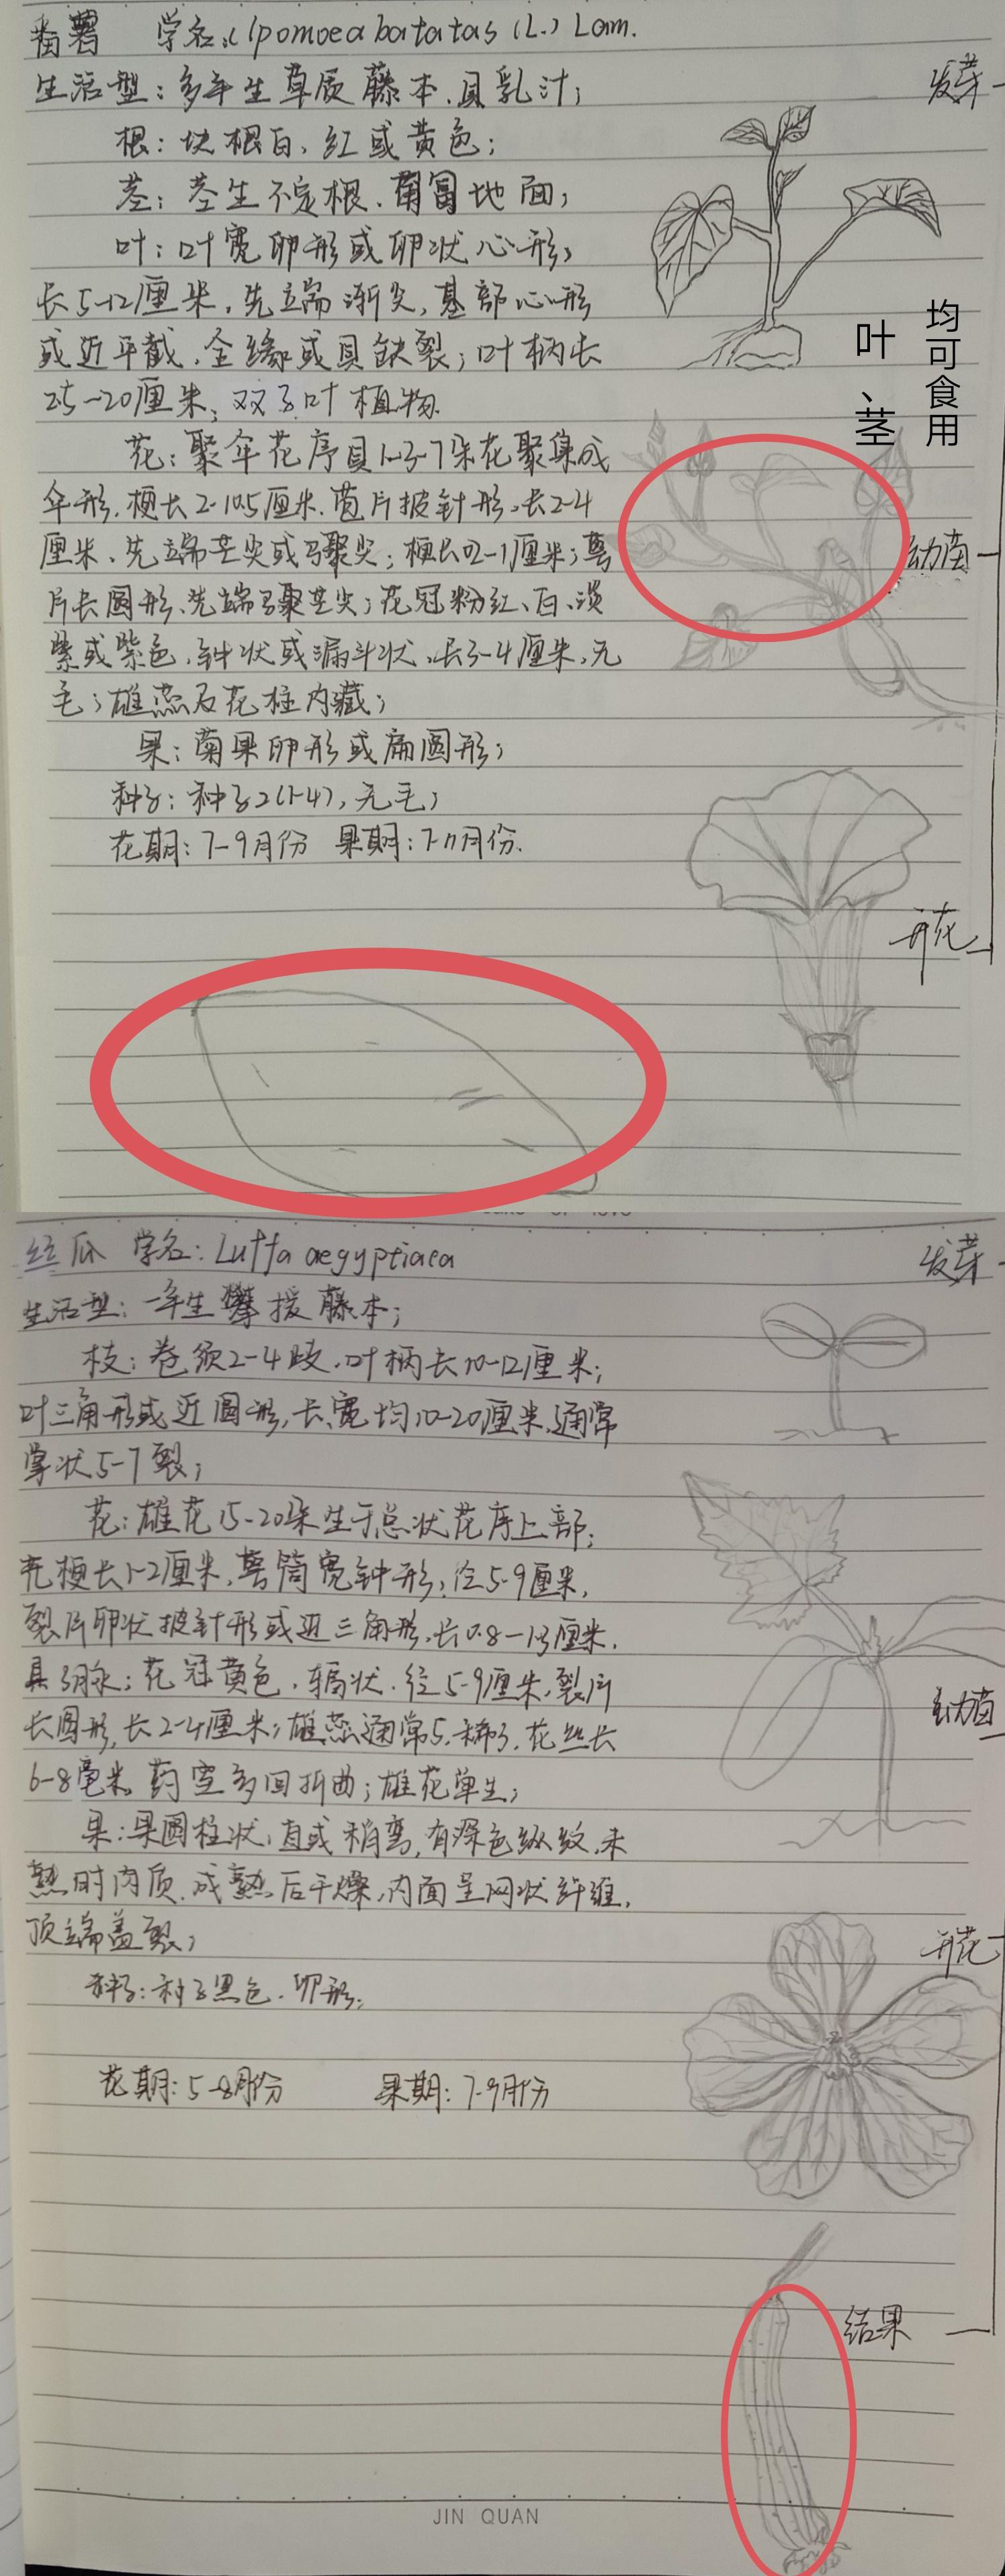 番薯 学名:Ipomoea batatas (L.) Lam.
生活型:多年生草质藤本,具乳汁;
发芽
根:块根白、红或黄色;
茎:茎生不定根,匍匐地面;
叶:叶宽卵形或卵状心形,
长5-12厘米,先端渐尖,基部心形
或近平截,全缘或具缺裂;叶柄长
2.5-20厘米,双子叶植物.
叶、茎
均可食用
花:聚伞花序具1-3-7朵花聚集成
伞形,梗长2-10.5厘米,苞片披针形,长2-4
厘米,先端芒尖或骤尖;梗长0.2-1厘米;萼
幼苗
片长圆形,先端骤芒尖;花冠粉红、白、淡
紫或紫色,钟状或漏斗状,长3-4厘米,无
毛;雄蕊及花柱内藏;
果:蒴果卵形或扁圆形;
种子:种子2(1-4),无毛;
花期:7-9月份 果期:7-11月份.
开花
丝瓜 学名:Luffa aegyptiaca
发芽
生活型:一年生攀援藤本;
枝:卷须2-4歧,叶柄长10-12厘米;
叶三角形或近圆形,长、宽均10-20厘米,通常
掌状5-7裂;
花:雄花15-20朵生于总状花序上部;
花梗长1-2厘米,萼筒宽钟形,径5-9厘米,
裂片卵状披针形或近三角形,长0.8-1.3厘米,
具3脉;花冠黄色,辐状,径5-9厘米,裂片
长圆形,长2-4厘米;雄蕊通常5,稀3,花丝长
幼苗
6-8毫米,药室多回折曲;雄花单生;
果:果圆柱状,直或稍弯,有深色纵纹,未
熟时肉质,成熟后干燥,内面呈网状纤维,
顶端盖裂;
开花
种子:种子黑色,卵形;
花期:5-8月份 果期:7-9月份
结果
JIN QUAN